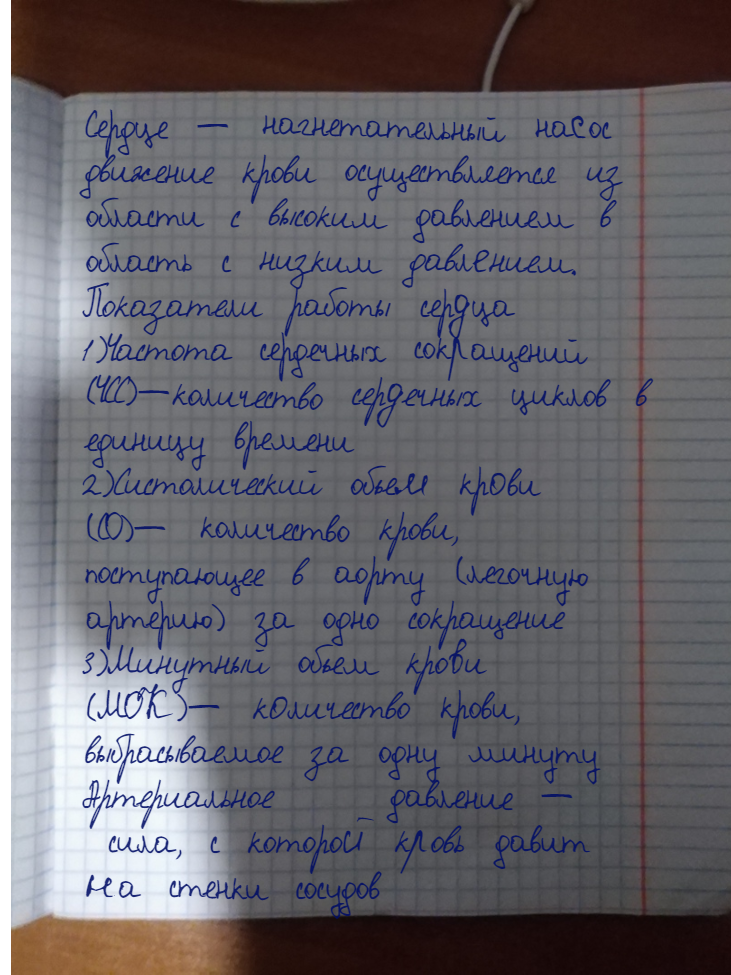 Сердце — нагнетательный насос
движение крови осуществляется из
области с высоким давлением в
область с низким давлением.
Показатели работы сердца
1)Частота сердечных сокращений
(ЧСС)—количество сердечных циклов в
единицу времени
2)Систолический объем крови
(СО)— количество крови,
поступающее в аорту (легочную
артерию) за одно сокращение
3)Минутный объем крови
(МОК)— количество крови,
выбрасываемое за одну минуту
Артериальное давление —
сила, с которой кровь давит
на стенки сосудов